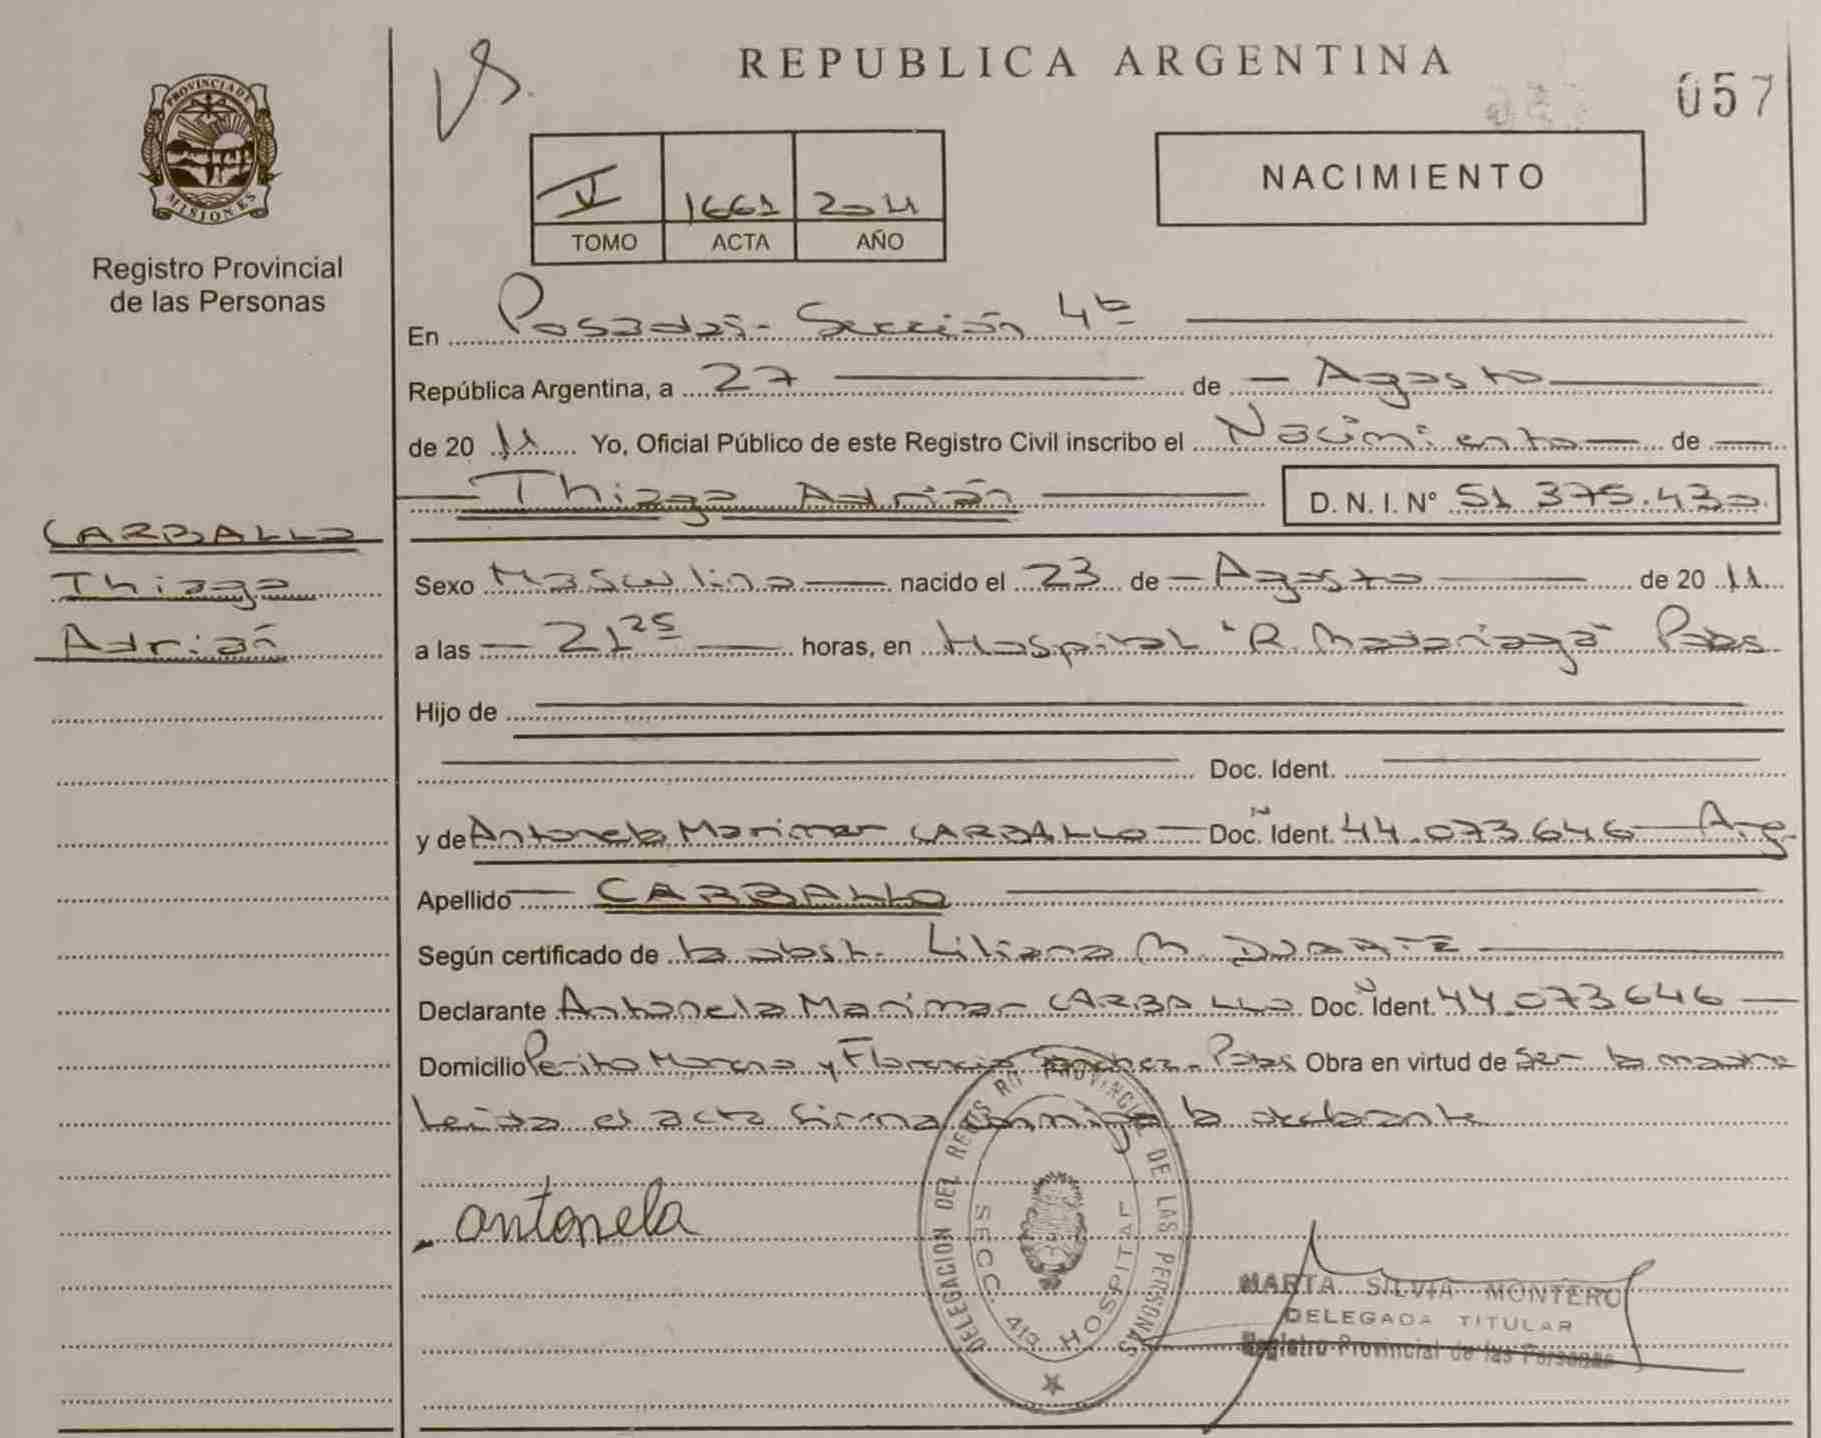 REPUBLICA ARGENTINA
057
PROVINCIA DE
MISIONES
Registro Provincial
de las Personas
V 1661 2011
TOMO ACTA AÑO
NACIMIENTO
En Posadas - Sección 4ta
República Argentina, a 27 de Agosto
de 2011 Yo, Oficial Público de este Registro Civil inscribo el Nacimiento de
Thiago Adrián D. N. I. N° 51 375.430
CARBALLO
Thiago
Adrián
Sexo Masculino nacido el 23 de Agosto de 2011
a las 21 25 horas, en Hospital "R. Madariaga" Pdas
Hijo de
Doc. Ident.
y de Antonela Marimar CARBALLO Doc. Ident. 44.073.646 Arg.
Apellido CARBALLO
Según certificado de la obst. Liliana M. DUARTE
Declarante Antonela Marimar CARBALLO Doc. Ident. 44.073.646
Domicilio Perito Moreno y Florencio Sanchez - Pdas Obra en virtud de ser la madre
Leida el acta firma conmigo la declarante
antonela
DELEGACION DEL REGISTRO PROVINCIAL DE LAS PERSONAS
SECC. 4ta HOSPITAL
MARTA SILVIA MONTERO
DELEGADA TITULAR
Registro Provincial de las Personas